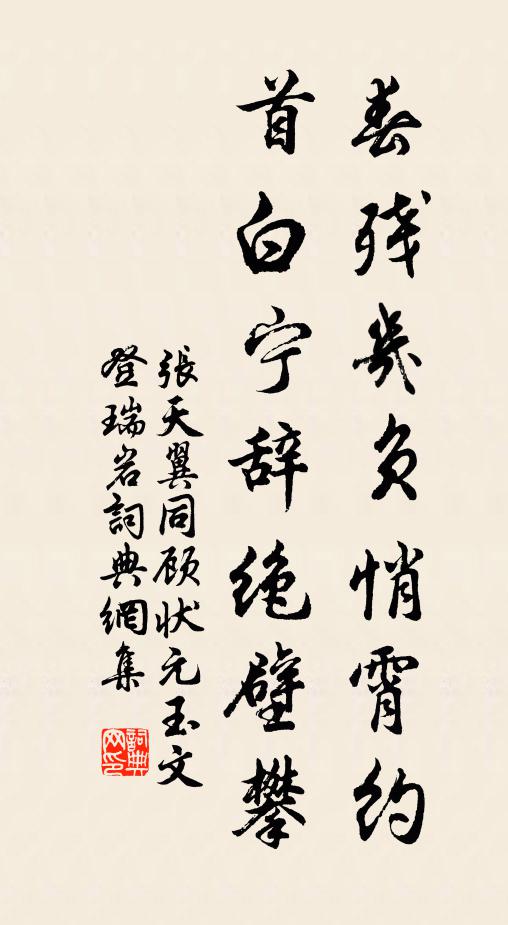 春残几负悄霄约
首白宁辞绝壁攀
張天翼同顾状元玉文
登瑞岩詞典網集
詞典网印